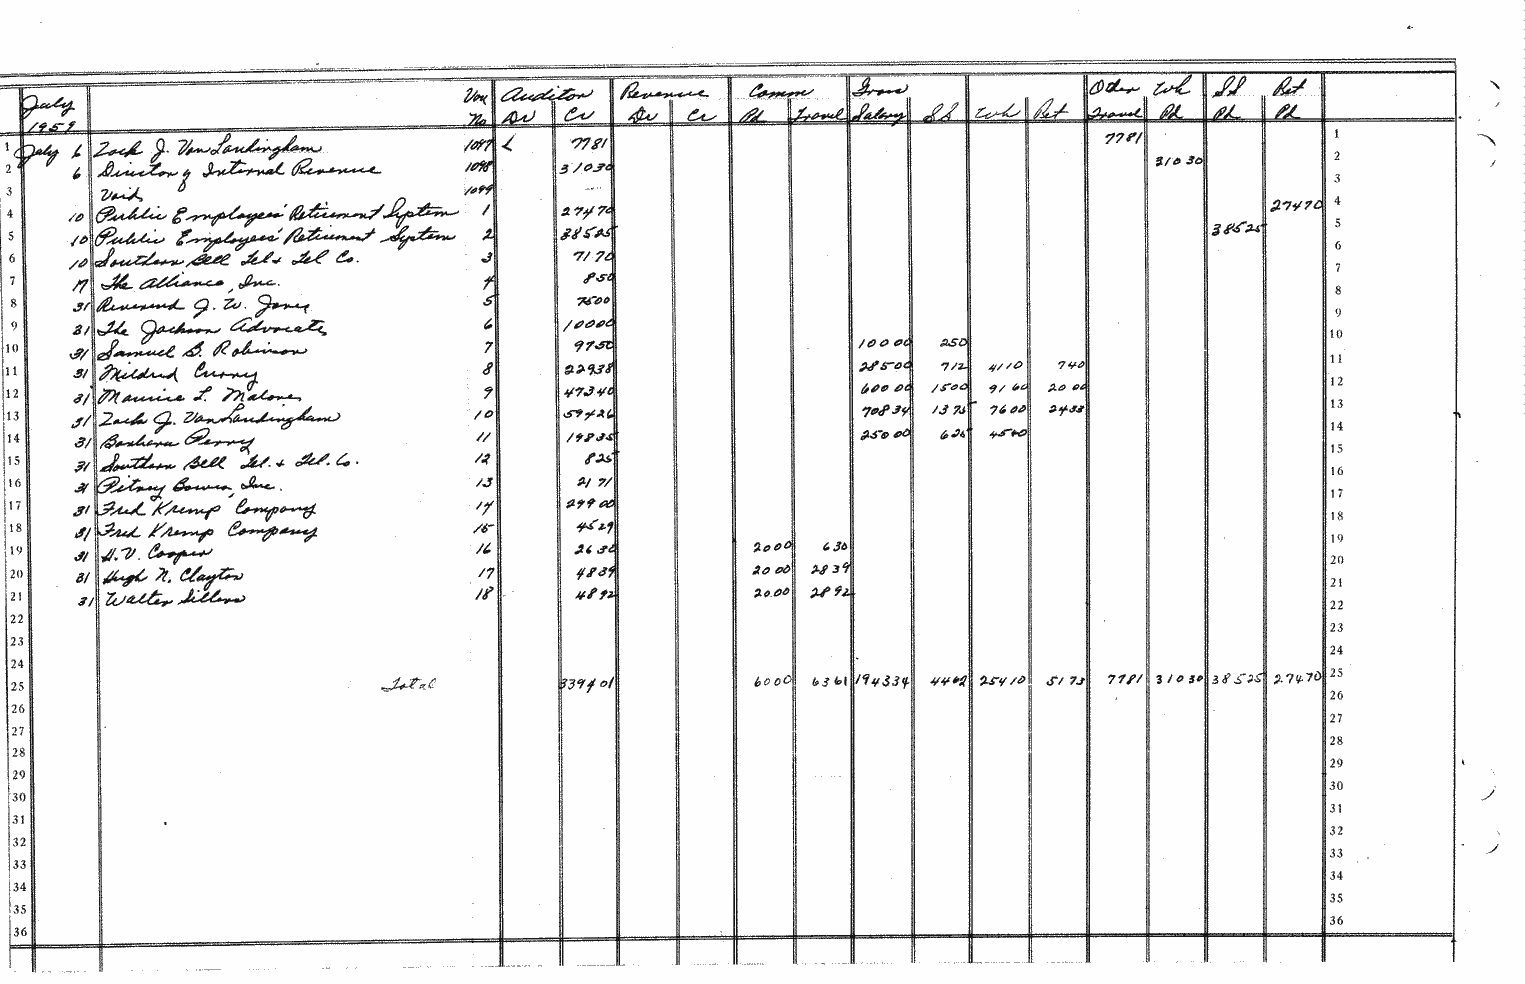 July Vou Auditor Revenue Comm Gross Other Wh SS Ret
1959 No Dr Cr Dr Cr Pd Travel Salary SS Wh Ret Travel Pd Pd Pd
1 July 6 Zack J. Van Landingham 1097 7781 7781 1
2 6 Director of Internal Revenue 1098 31030 31030 2
3 Void 1099 3
4 10 Public Employees' Retirement System 1 27470 27470 4
5 10 Public Employees' Retirement System 2 38525 38525 5
6 10 Southern Bell Tel & Tel Co. 3 7170 6
7 17 The Alliance, Inc. 4 850 7
8 31 Reverend J. W. Jones 5 7500 8
9 31 The Jackson Advocate 6 10000 9
10 31 Samuel B. Robinson 7 9750 10000 250 10
11 31 Mildred Curry 8 22938 28500 712 4110 740 11
12 31 Maurice L. Malone 9 47340 60000 1500 9160 2000 12
13 31 Zack J. Van Landingham 10 59426 70834 1375 7600 2433 13
14 31 Barbara Perry 11 19835 25000 625 4540 14
15 31 Southern Bell Tel. & Tel. Co. 12 825 15
16 31 Pitney Bowes, Inc. 13 2171 16
17 31 Fred Kremp Company 14 29900 17
18 31 Fred Kremp Company 15 4529 18
19 31 H. V. Cooper 16 2630 2000 630 19
20 31 Hugh N. Clayton 17 4839 2000 2839 20
21 31 Walter Sillers 18 4892 2000 2892 21
22 22
23 23
24 24
25 Total 339401 6000 6361 194334 4462 25410 5173 7781 31030 38525 27470 25
26 26
27 27
28 28
29 29
30 30
31 31
32 32
33 33
34 34
35 35
36 36